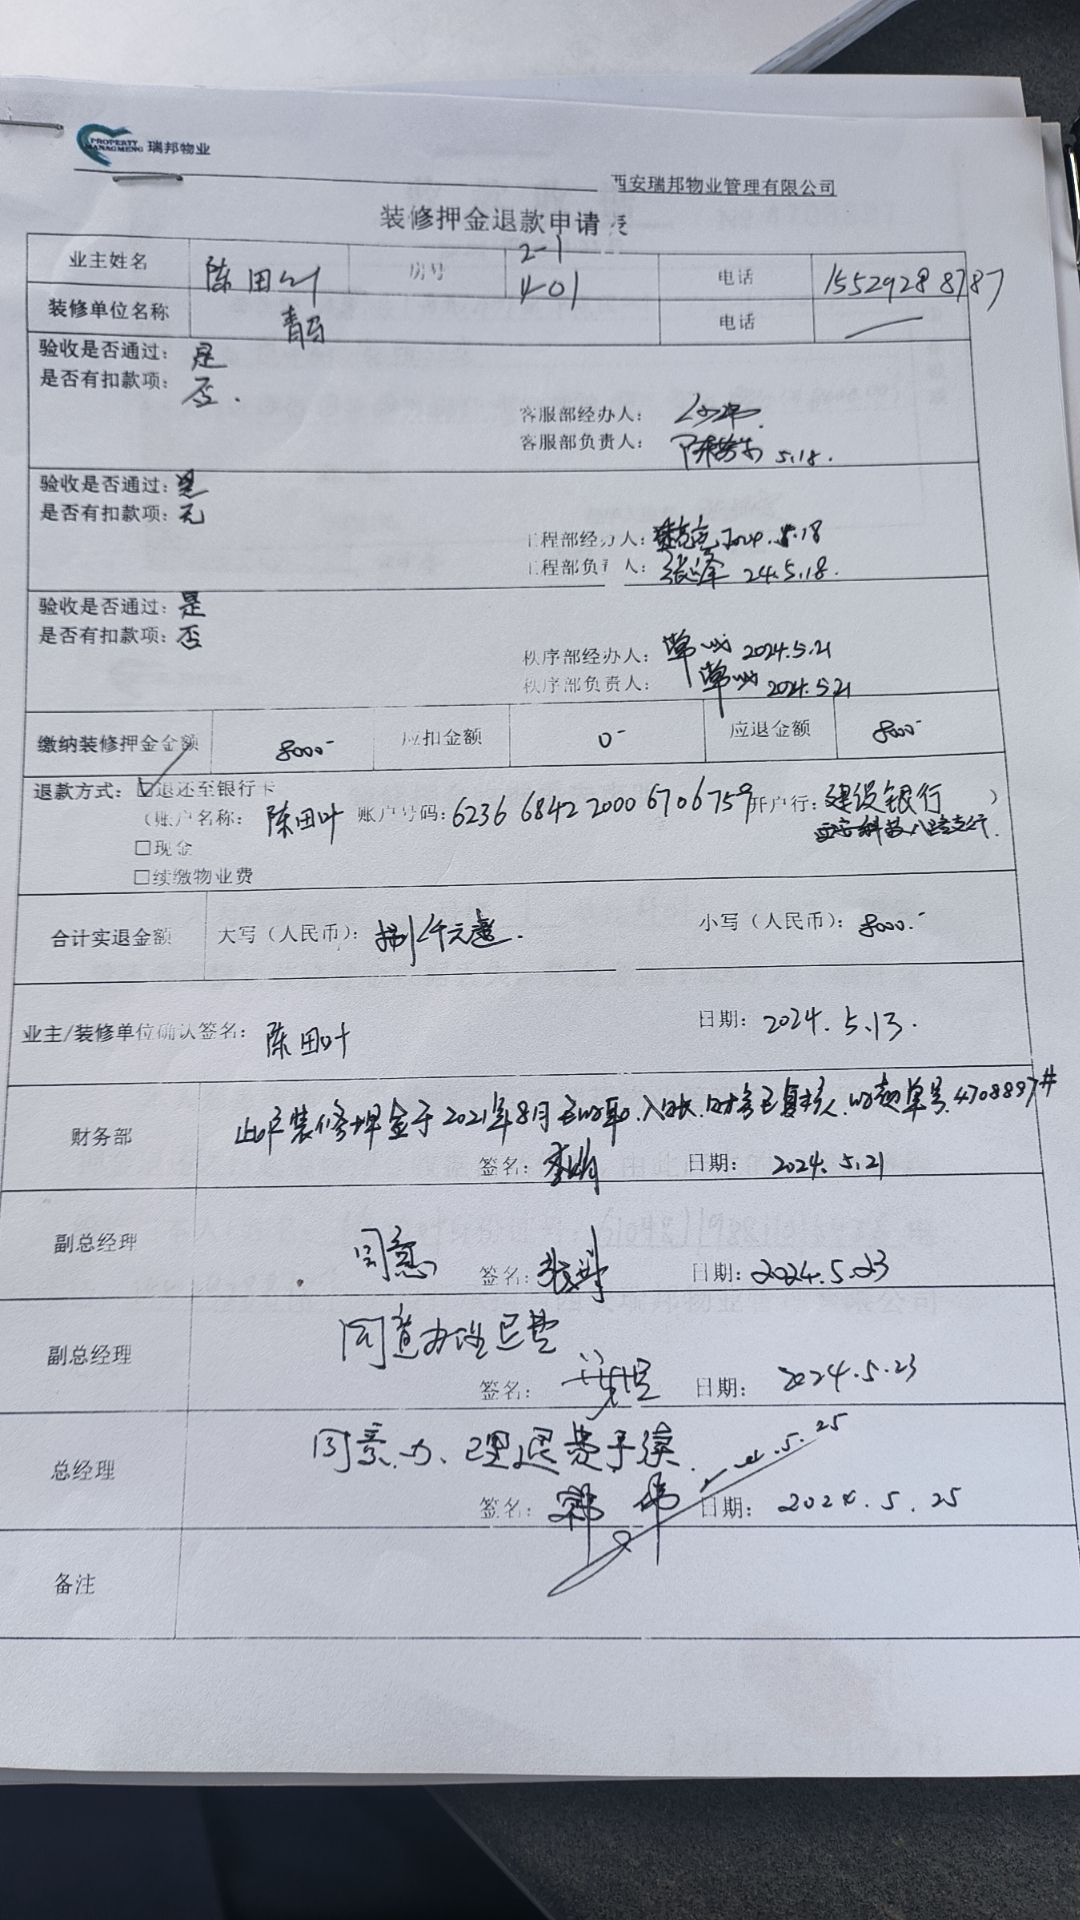 PROPERTY
MANAGMENG 瑞邦物业
西安瑞邦物业管理有限公司
装修押金退款申请表
业主姓名 陈田叶 房号 2-1 401 电话 15529288787
装修单位名称 电话
验收是否通过：是
是否有扣款项：否.
客服部经办人：
客服部负责人： 5.18.
验收是否通过：是
是否有扣款项：无
工程部经办人： 2024.5.18
工程部负责人： 24.5.18.
验收是否通过：是
是否有扣款项：否
秩序部经办人： 2024.5.21
秩序部负责人： 2024.5.21
缴纳装修押金金额 8000- 应扣金额 0- 应退金额 8000-
退款方式：☑退还至银行卡
（账户名称：陈田叶 账户号码：6236 6842 2000 6706759 开户行：建设银行）
西安科技八路支行.
□现金
□续缴物业费
合计实退金额 大写（人民币）：捌仟元整. 小写（人民币）：8000.-
业主/装修单位确认签名：陈田叶 日期：2024.5.13.
财务部 此户装修押金于2021年8月已收取.入账.财务已复核.收款单号.4708897#
签名： 日期：2024.5.21
副总经理 同意 签名： 日期：2024.5.23
副总经理 同意办理退费
签名： 日期：2024.5.23
总经理 同意办理退费手续.
签名： 日期：2024.5.25
备注